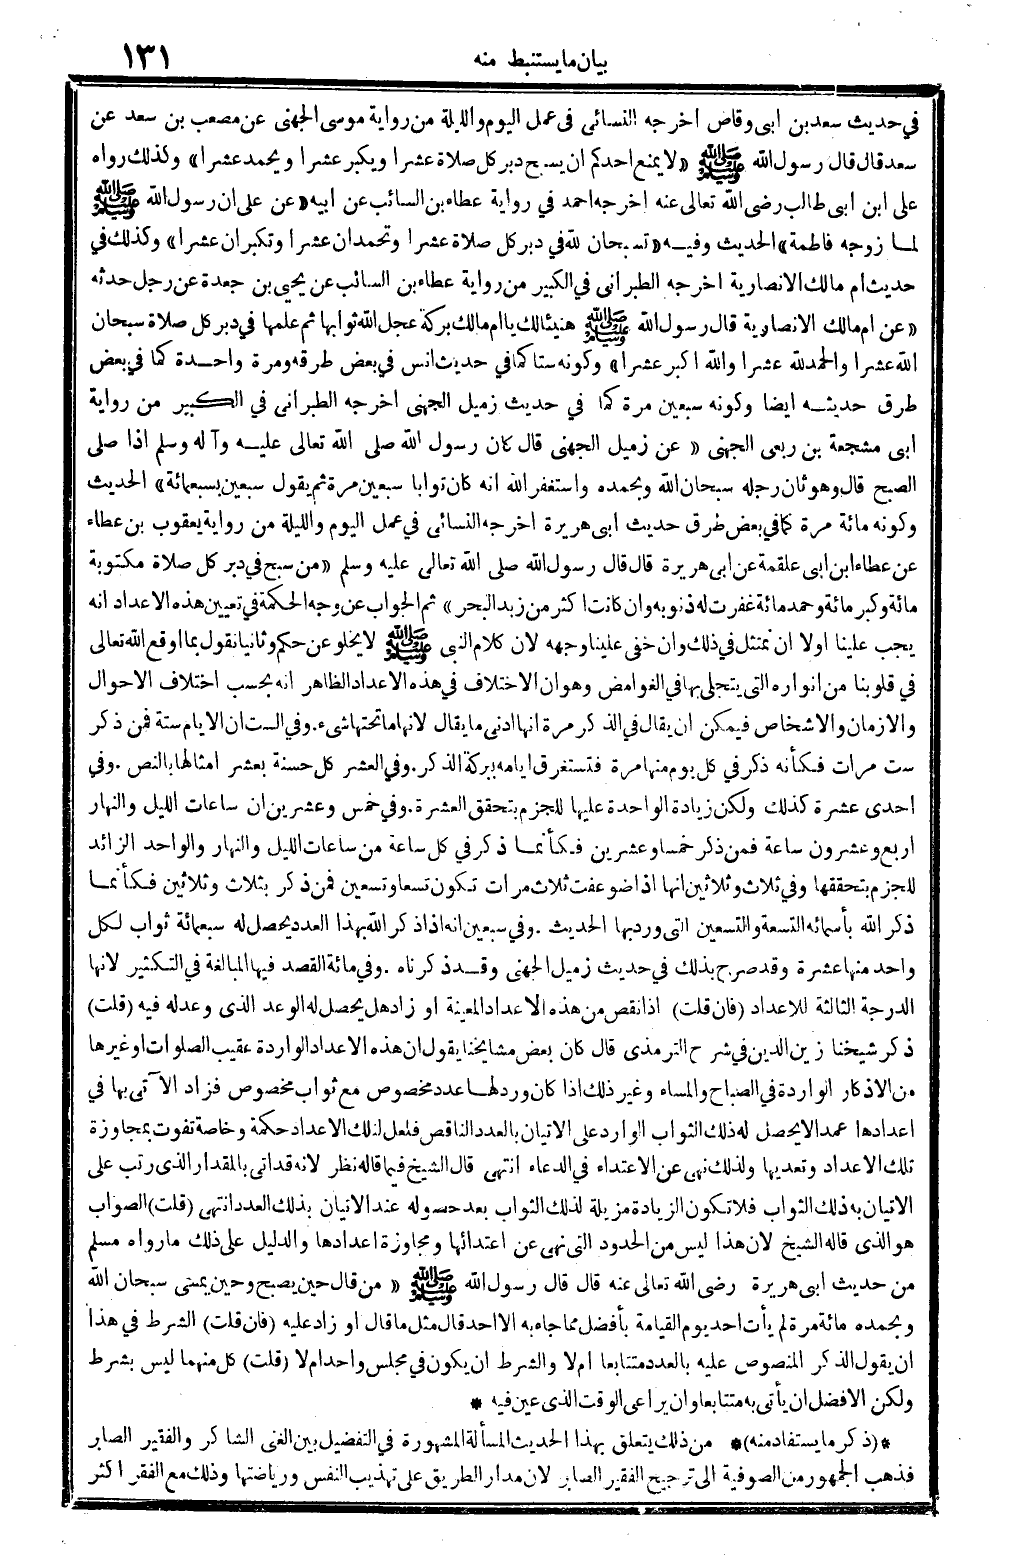 بيان ما يستنبط منه
١٣١
في حديث سعد بن ابى وقاص اخرجه النسائى فى عمل اليوم والليلة من رواية موسى الجهنى عن مصعب بن سعد عن
سعد قال قال رسول الله ﷺ «لا يمنع احدكم ان يسبح دبر كل صلاة عشرا ويكبر عشرا ويحمد عشرا» وكذلك رواه
على ابن ابى طالب رضى الله تعالى عنه اخرجه احمد في رواية عطاء بن السائب عن ابيه «عن على ان رسول الله ﷺ
لما زوجه فاطمة» الحديث وفيه «تسبحان لله في دبر كل صلاة عشرا وتحمدان عشرا وتكبران عشرا» وكذلك في
حديث ام مالك الانصارية اخرجه الطبرانى في الكبير من رواية عطاء بن السائب عن يحيى بن جعدة عن رجل حدثه
«عن ام مالك الانصارية قال رسول الله ﷺ هنيئا لك يا ام مالك بركة عجل الله ثوابها ثم علمها في دبر كل صلاة سبحان
الله عشرا والحمد لله عشرا والله اكبر عشرا» وكونه ستا كما في حديث انس في بعض طرقه ومرة واحدة كما في بعض
طرق حديثه ايضا وكونه سبعين مرة كما في حديث زميل الجهنى اخرجه الطبرانى في الكبير من رواية
ابى مشجعة بن ربعى الجهنى « عن زميل الجهنى قال كان رسول الله صلى الله تعالى عليه وآله وسلم اذا صلى
الصبح قال وهو ثان رجله سبحان الله وبحمده واستغفر الله انه كان توابا سبعين مرة ثم يقول سبعين بسبعمائة» الحديث
وكونه مائة مرة كما في بعض طرق حديث ابى هريرة اخرجه النسائى في عمل اليوم والليلة من رواية يعقوب بن عطاء
عن عطاء ابن ابى علقمة عن ابى هريرة قال قال رسول الله صلى الله تعالى عليه وسلم «من سبح في دبر كل صلاة مكتوبة
مائة وكبر مائة وحمد مائة غفرت له ذنوبه وان كانت اكثر من زبد البحر» ثم الجواب عن وجه الحكمة في تعيين هذه الاعداد انه
يجب علينا اولا ان نمتثل في ذلك وان خفى علينا وجهه لان كلام النبى ﷺ لا يخلو عن حكم وثانيا نقول بما اوقع الله تعالى
في قلوبنا من انواره التى يتجلى بها في الغوامض وهو ان الاختلاف في هذه الاعداد الظاهر انه بحسب اختلاف الاحوال
والازمان والاشخاص فيمكن ان يقال في الذكر مرة انها ادنى ما يقال لانها ما تحتها شىء . وفي الست ان الايام ستة فمن ذكر
ست مرات فكأنه ذكر في كل يوم منها مرة فتستغرق ايامه بركة الذكر . وفي العشر كل حسنة بعشر امثالها بالنص . وفي
احدى عشرة كذلك ولكن زيادة الواحدة عليها للجزم بتحقق العشرة . وفي خمس وعشرين ان ساعات الليل والنهار
اربع وعشرون ساعة فمن ذكر خمسا وعشرين فكأنما ذكر في كل ساعة من ساعات الليل والنهار والواحد الزائد
للجزم بتحققها وفي ثلاث وثلاثين انها اذا ضوعفت ثلاث مرات تكون تسعا وتسعين فمن ذكر بثلاث وثلاثين فكأنما
ذكر الله بأسمائه التسعة والتسعين التى ورد بها الحديث . وفي سبعين انه اذا ذكر الله بهذا العدد يحصل له سبعمائة ثواب لكل
واحد منها عشرة وقد صرح بذلك في حديث زميل الجهنى وقد ذكرناه . وفي مائة القصد فيها المبالغة في التكثير لانها
الدرجة الثالثة للاعداد (فان قلت) اذا نقص من هذه الاعداد المعينة او زاد هل يحصل له الوعد الذى وعد له فيه (قلت)
ذكر شيخنا زين الدين في شرح الترمذى قال كان بعض مشايخنا يقول ان هذه الاعداد الواردة عقيب الصلوات او غيرها
من الاذكار الواردة في الصباح والمساء وغير ذلك اذا كان ورد لها عدد مخصوص مع ثواب مخصوص فزاد الآتى بها في
اعدادها عمدا لا يحصل له ذلك الثواب الوارد على الاتيان بالعدد الناقص فلعل لتلك الاعداد حكمة وخاصة تفوت بمجاوزة
تلك الاعداد وتعديها ولذلك نهى عن الاعتداء في الدعاء انتهى قال الشيخ فيما قاله نظر لانه قد اتى بالمقدار الذى رتب على
الاتيان به ذلك الثواب فلا تكون الزيادة مزيلة لذلك الثواب بعد حصوله عند الاتيان بذلك العدد انتهى (قلت) الصواب
هو الذى قاله الشيخ لان هذا ليس من الحدود التى نهى عن اعتدائها ومجاوزة اعدادها والدليل على ذلك ما رواه مسلم
من حديث ابى هريرة رضى الله تعالى عنه قال قال رسول الله ﷺ « من قال حين يصبح وحين يمسى سبحان الله
وبحمده مائة مرة لم يأت احد يوم القيامة بأفضل مما جاء به الا احد قال مثل ما قال او زاد عليه (فان قلت) الشرط في هذا
ان يقول الذكر المنصوص عليه بالعدد متتابعا ام لا والشرط ان يكون في مجلس واحد ام لا (قلت) كل منهما ليس بشرط
ولكن الافضل ان يأتى به متتابعا وان يراعى الوقت الذى عين فيه *
*(ذكر ما يستفاد منه)* من ذلك يتعلق بهذا الحديث المسألة المشهورة في التفضيل بين الغنى الشاكر والفقير الصابر
فذهب الجمهور من الصوفية الى ترجيح الفقير الصابر لان مدار الطريق على تهذيب النفس ورياضتها وذلك مع الفقر اكثر